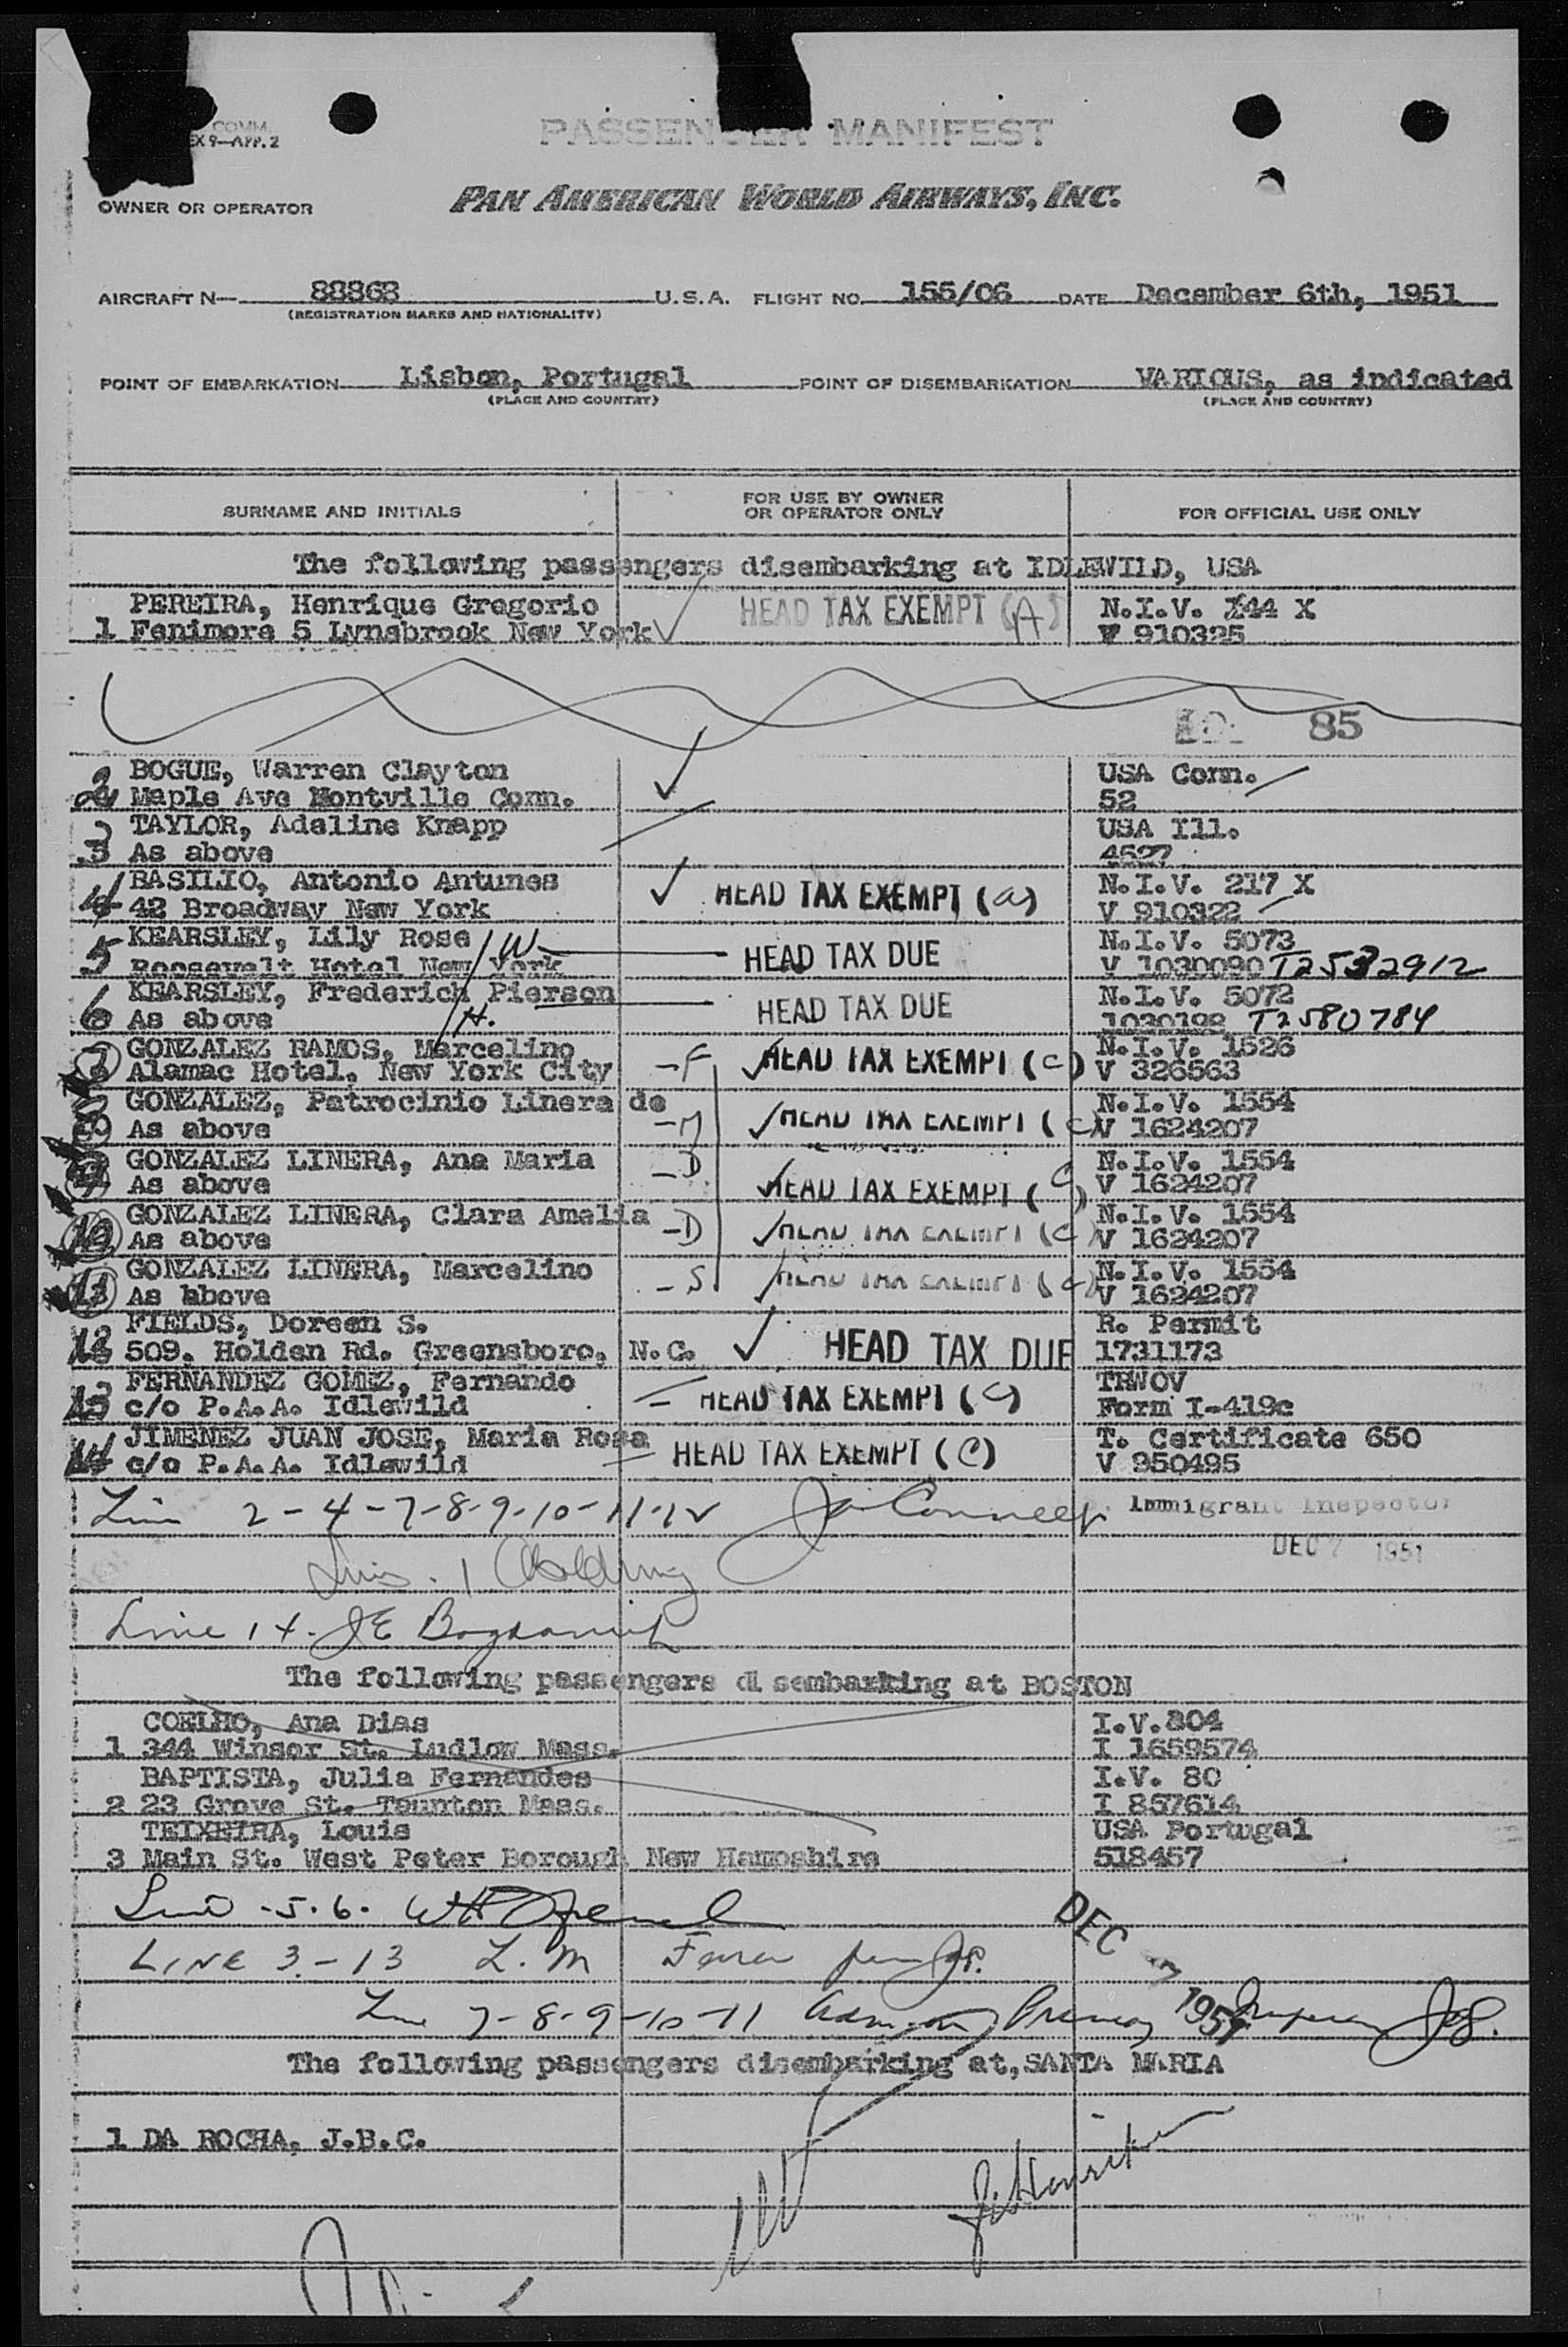 COMM.
EX 9—APP. 2
PASSENGER MANIFEST
OWNER OR OPERATOR
PAN AMERICAN WORLD AIRWAYS, INC.
AIRCRAFT N— 88868 U.S.A. FLIGHT NO. 155/06 DATE December 6th, 1951
(REGISTRATION MARKS AND NATIONALITY)
POINT OF EMBARKATION Lisbon, Portugal POINT OF DISEMBARKATION VARIOUS, as indicated
(PLACE AND COUNTRY) (PLACE AND COUNTRY)
SURNAME AND INITIALS FOR USE BY OWNER OR OPERATOR ONLY FOR OFFICIAL USE ONLY
The following passengers disembarking at IDLEWILD, USA
PEREIRA, Henrique Gregorio HEAD TAX EXEMPT (A) N.I.V. 144 X
1 Fenimore 5 Lynsbrook New York V 910325
85
BOGUE, Warren Clayton USA Conn.
2 Maple Ave Montville Conn. 52
TAYLOR, Adeline Knapp USA Ill.
3 As above 4527
BASILIO, Antonio Antunes HEAD TAX EXEMPT (a) N.I.V. 217 X
4 42 Broadway New York V 910322
KEARSLEY, Lily Rose W HEAD TAX DUE N.I.V. 5073
5 Roosevelt Hotel New York V 1030090 T2532912
KEARSLEY, Frederich Pierson HEAD TAX DUE N.I.V. 5072
6 As above H. 1030199 T2580784
GONZALEZ RAMOS, Marcelino -F HEAD TAX EXEMPT (C) N.I.V. 1526
7 Alamac Hotel, New York City V 326563
GONZALEZ, Patrocinio Linera de -M HEAD TAX EXEMPT (C) N.I.V. 1554
8 As above V 1624207
GONZALEZ LINERA, Ana Maria -D HEAD TAX EXEMPT (C) N.I.V. 1554
9 As above V 1624207
GONZALEZ LINERA, Clara Amelia -D HEAD TAX EXEMPT (C) N.I.V. 1554
10 As above V 1624207
GONZALEZ LINERA, Marcelino -S HEAD TAX EXEMPT (C) N.I.V. 1554
11 As above V 1624207
FIELDS, Doreen S. HEAD TAX DUE R. Permit
12 509. Holden Rd. Greensboro, N.C. 1731173
FERNANDEZ GOMEZ, Fernando HEAD TAX EXEMPT (C) TRWOV
13 c/o P.A.A. Idlewild Form I-419c
JIMENEZ JUAN JOSE, Maria Rosa HEAD TAX EXEMPT (C) T. Certificate 650
14 c/o P.A.A. Idlewild V 950495
2-4-7-8-9-10-11-12 Immigrant Inspector
DEC 7 1951
Line 14. JE
The following passengers disembarking at BOSTON
COELHO, Ana Dias I.V. 804
1 344 Winsor St. Ludlow Mass. I 1659574
BAPTISTA, Julia Fernandes I.V. 80
2 23 Grove St. Taunton Mass. I 857614
TEIXEIRA, Louis USA Portugal
3 Main St. West Peter Borough New Hampshire 518457
Line 5.6.
LINE 3-13 L. M
DEC 7 1951
Line 7-8-9-10-11
The following passengers disembarking at, SANTA MARIA
1 DA ROCHA, J.B.C.